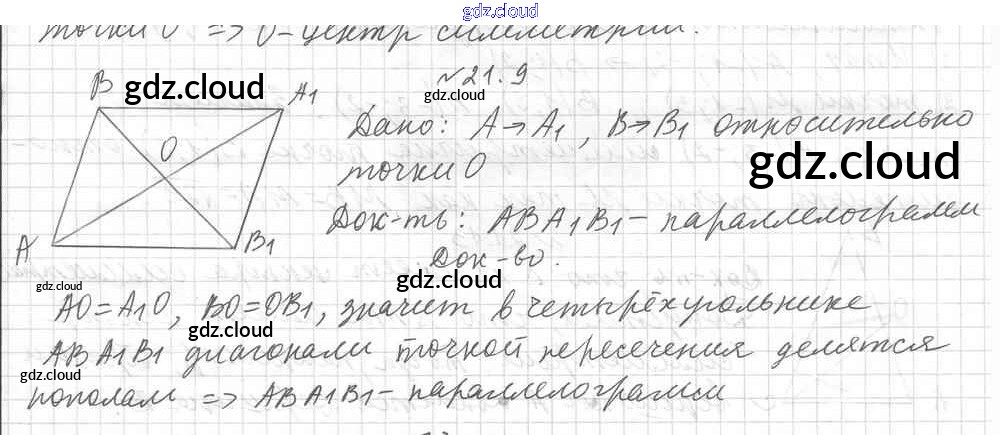 gdz.cloud
точки O => O - центр симметрии.
№21.9
B gdz.cloud A1
gdz.cloud
O
Дано: A→A1, B→B1 относительно
точки O
gdz.cloud
Док-ть: ABA1B1 - параллелограмм
A B1
Док-во.
gdz.cloud
gdz.cloud
AO=A1O, BO=OB1, значит в четырёхугольнике
gdz.cloud gdz.cloud
ABA1B1 диагонали точкой пересечения делятся
gdz.cloud gdz.cloud
пополам => ABA1B1 - параллелограмм